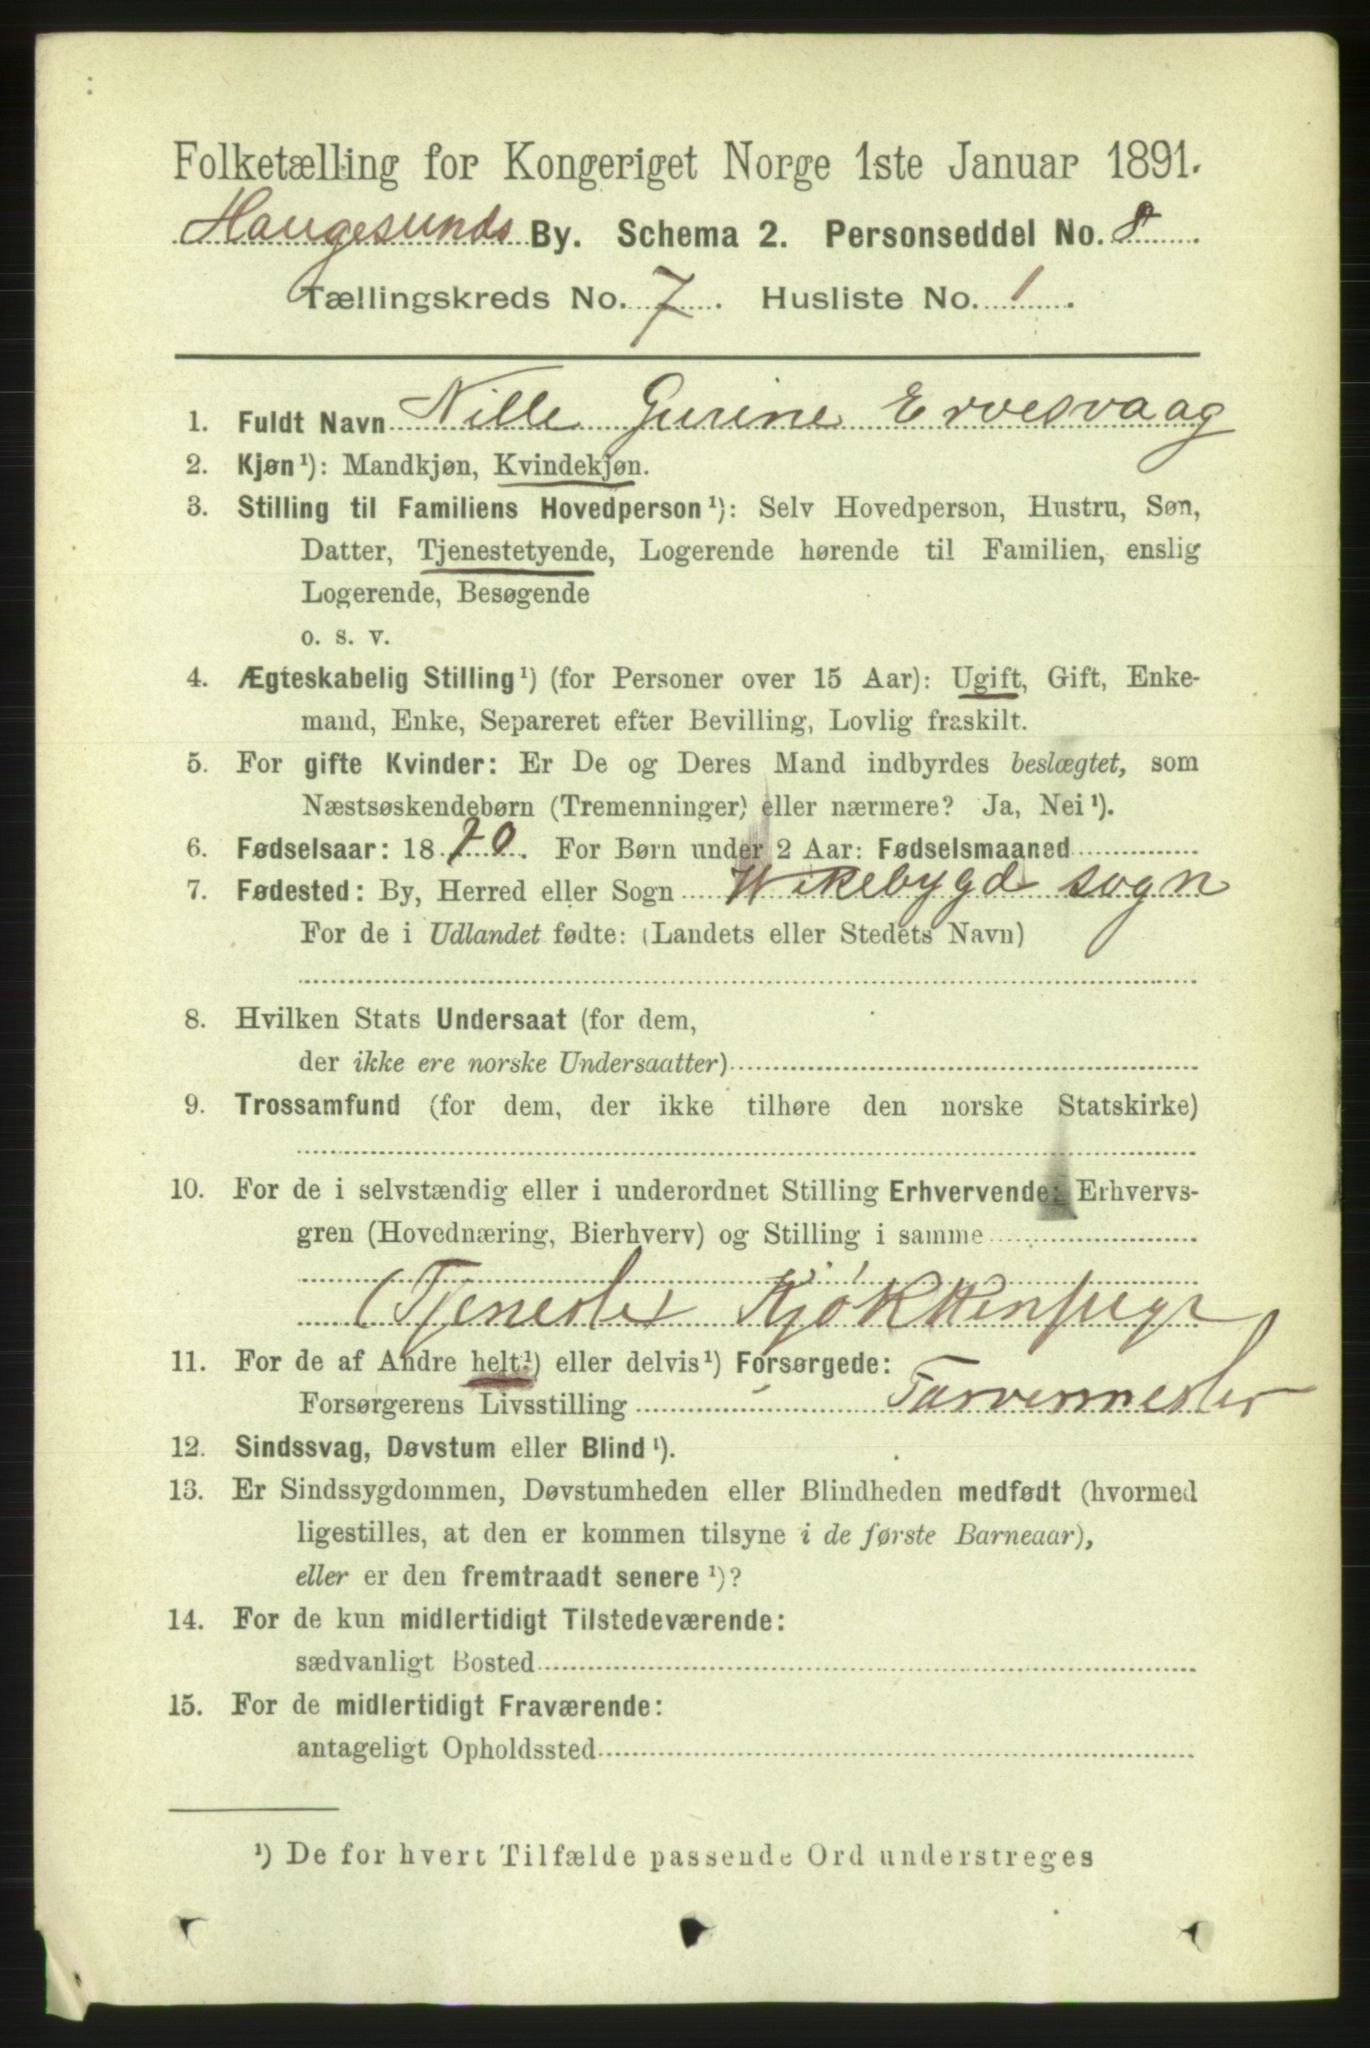 Folketælling for Kongeriget Norge 1ste Januar 1891.
Haugesunds By. Schema 2. Personseddel No. 8
Tællingskreds No. 7. Husliste No. 1.
1. Fuldt Navn Nille Gurine Ervesvaag
2. Kjøn¹): Mandkjøn, Kvindekjøn.
3. Stilling til Familiens Hovedperson¹): Selv Hovedperson, Hustru, Søn,
Datter, Tjenestetyende, Logerende hørende til Familien, enslig
Logerende, Besøgende
o. s. v.
4. Ægteskabelig Stilling¹) (for Personer over 15 Aar): Ugift, Gift, Enke-
mand, Enke, Separeret efter Bevilling, Lovlig fraskilt.
5. For gifte Kvinder: Er De og Deres Mand indbyrdes beslægtet, som
Næstsøskendebørn (Tremenninger) eller nærmere? Ja, Nei¹).
6. Fødselsaar: 1870. For Børn under 2 Aar: Fødselsmaaned
7. Fødested: By, Herred eller Sogn Wikebygd sogn
For de i Udlandet fødte: (Landets eller Stedets Navn)
8. Hvilken Stats Undersaat (for dem,
der ikke ere norske Undersaatter)
9. Trossamfund (for dem, der ikke tilhøre den norske Statskirke)
10. For de i selvstændig eller i underordnet Stilling Erhvervende: Erhvervs-
gren (Hovednæring, Bierhverv) og Stilling i samme
(Tjeneste) Kjøkkenpige
11. For de af Andre helt¹) eller delvis¹) Forsørgede:
Forsørgerens Livsstilling Farvermester
12. Sindssvag, Døvstum eller Blind¹).
13. Er Sindssygdommen, Døvstumheden eller Blindheden medfødt (hvormed
ligestilles, at den er kommen tilsyne i de første Barneaar),
eller er den fremtraadt senere¹)?
14. For de kun midlertidigt Tilstedeværende:
sædvanligt Bosted
15. For de midlertidigt Fraværende:
antageligt Opholdssted
¹) De for hvert Tilfælde passende Ord understreges